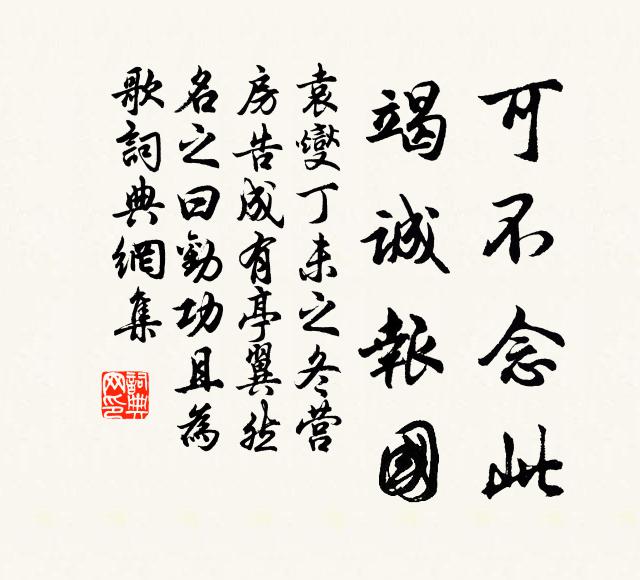 可不念此
竭誠報國
袁燮丁未之冬营
房告成有亭翼然
名之曰勸功且為
歌詞典網集
詞典
网印